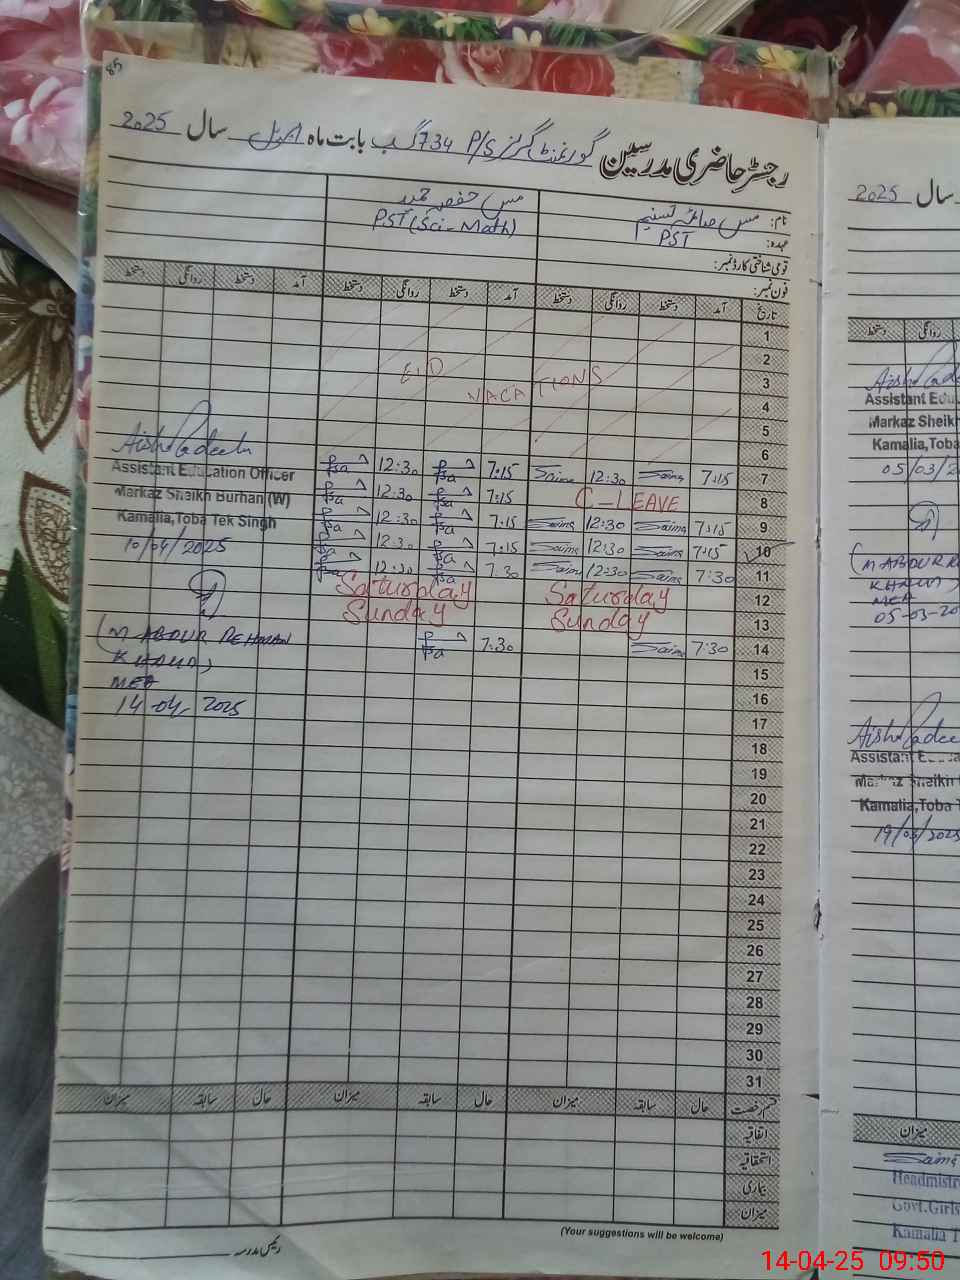 85
رجسٹر حاضری مدرسین گورنمنٹ گرلز P/S 734 گ ب بابت ماہ اپریل سال 2025
نام: مس صائمہ تسنیم مس حفصہ حمید
عہدہ: PST PST (Sci-Math)
قومی شناختی کارڈ نمبر:
فون نمبر:
تاریخ آمد دستخط روانگی دستخط آمد دستخط روانگی دستخط آمد دستخط روانگی دستخط
1
2
EID
3
VACATIONS
4
5
6
7 7:15 Saima 12:30 Saima 7:15 12:30
8 C-LEAVE 7:15 12:30
9 7:15 Saima 12:30 Saima 7:15 12:30
10 7:15 Saima 12:30 Saima 7:15 12:30
11 7:30 Saima 12:30 Saima 7:30 12:30
12 Saturday Saturday
13 Sunday Sunday
14 7:30 Saima 7:30
15
16
17
18
19
20
21
22
23
24
25
26
27
28
29
30
31
Assistant Education Officer
Markaz Sheikh Burhan (W)
Kamalia, Toba Tek Singh
10/04/2025
(M ABDUR REHMAN
KHALID)
MEA
14-04-2025
قسم رخصت حال سابقہ میزان حال سابقہ میزان حال سابقہ میزان
اتفاقیہ
استحقاقیہ
بیماری
میزان
(Your suggestions will be welcome)
رئیس مدرسہ
سال 2025
دستخط روانگی
Assistant Edu
Markaz Sheikh
Kamalia, Toba
05/03/2
(M ABDUR R
KHALID)
MEA
05-03-20
Assistant E
Markaz Sheikh
Kamalia, Toba T
19/03/2025
میزان
Saima
Headmistre
Govt. Girls
Kamalia T
14-04-25 09:50